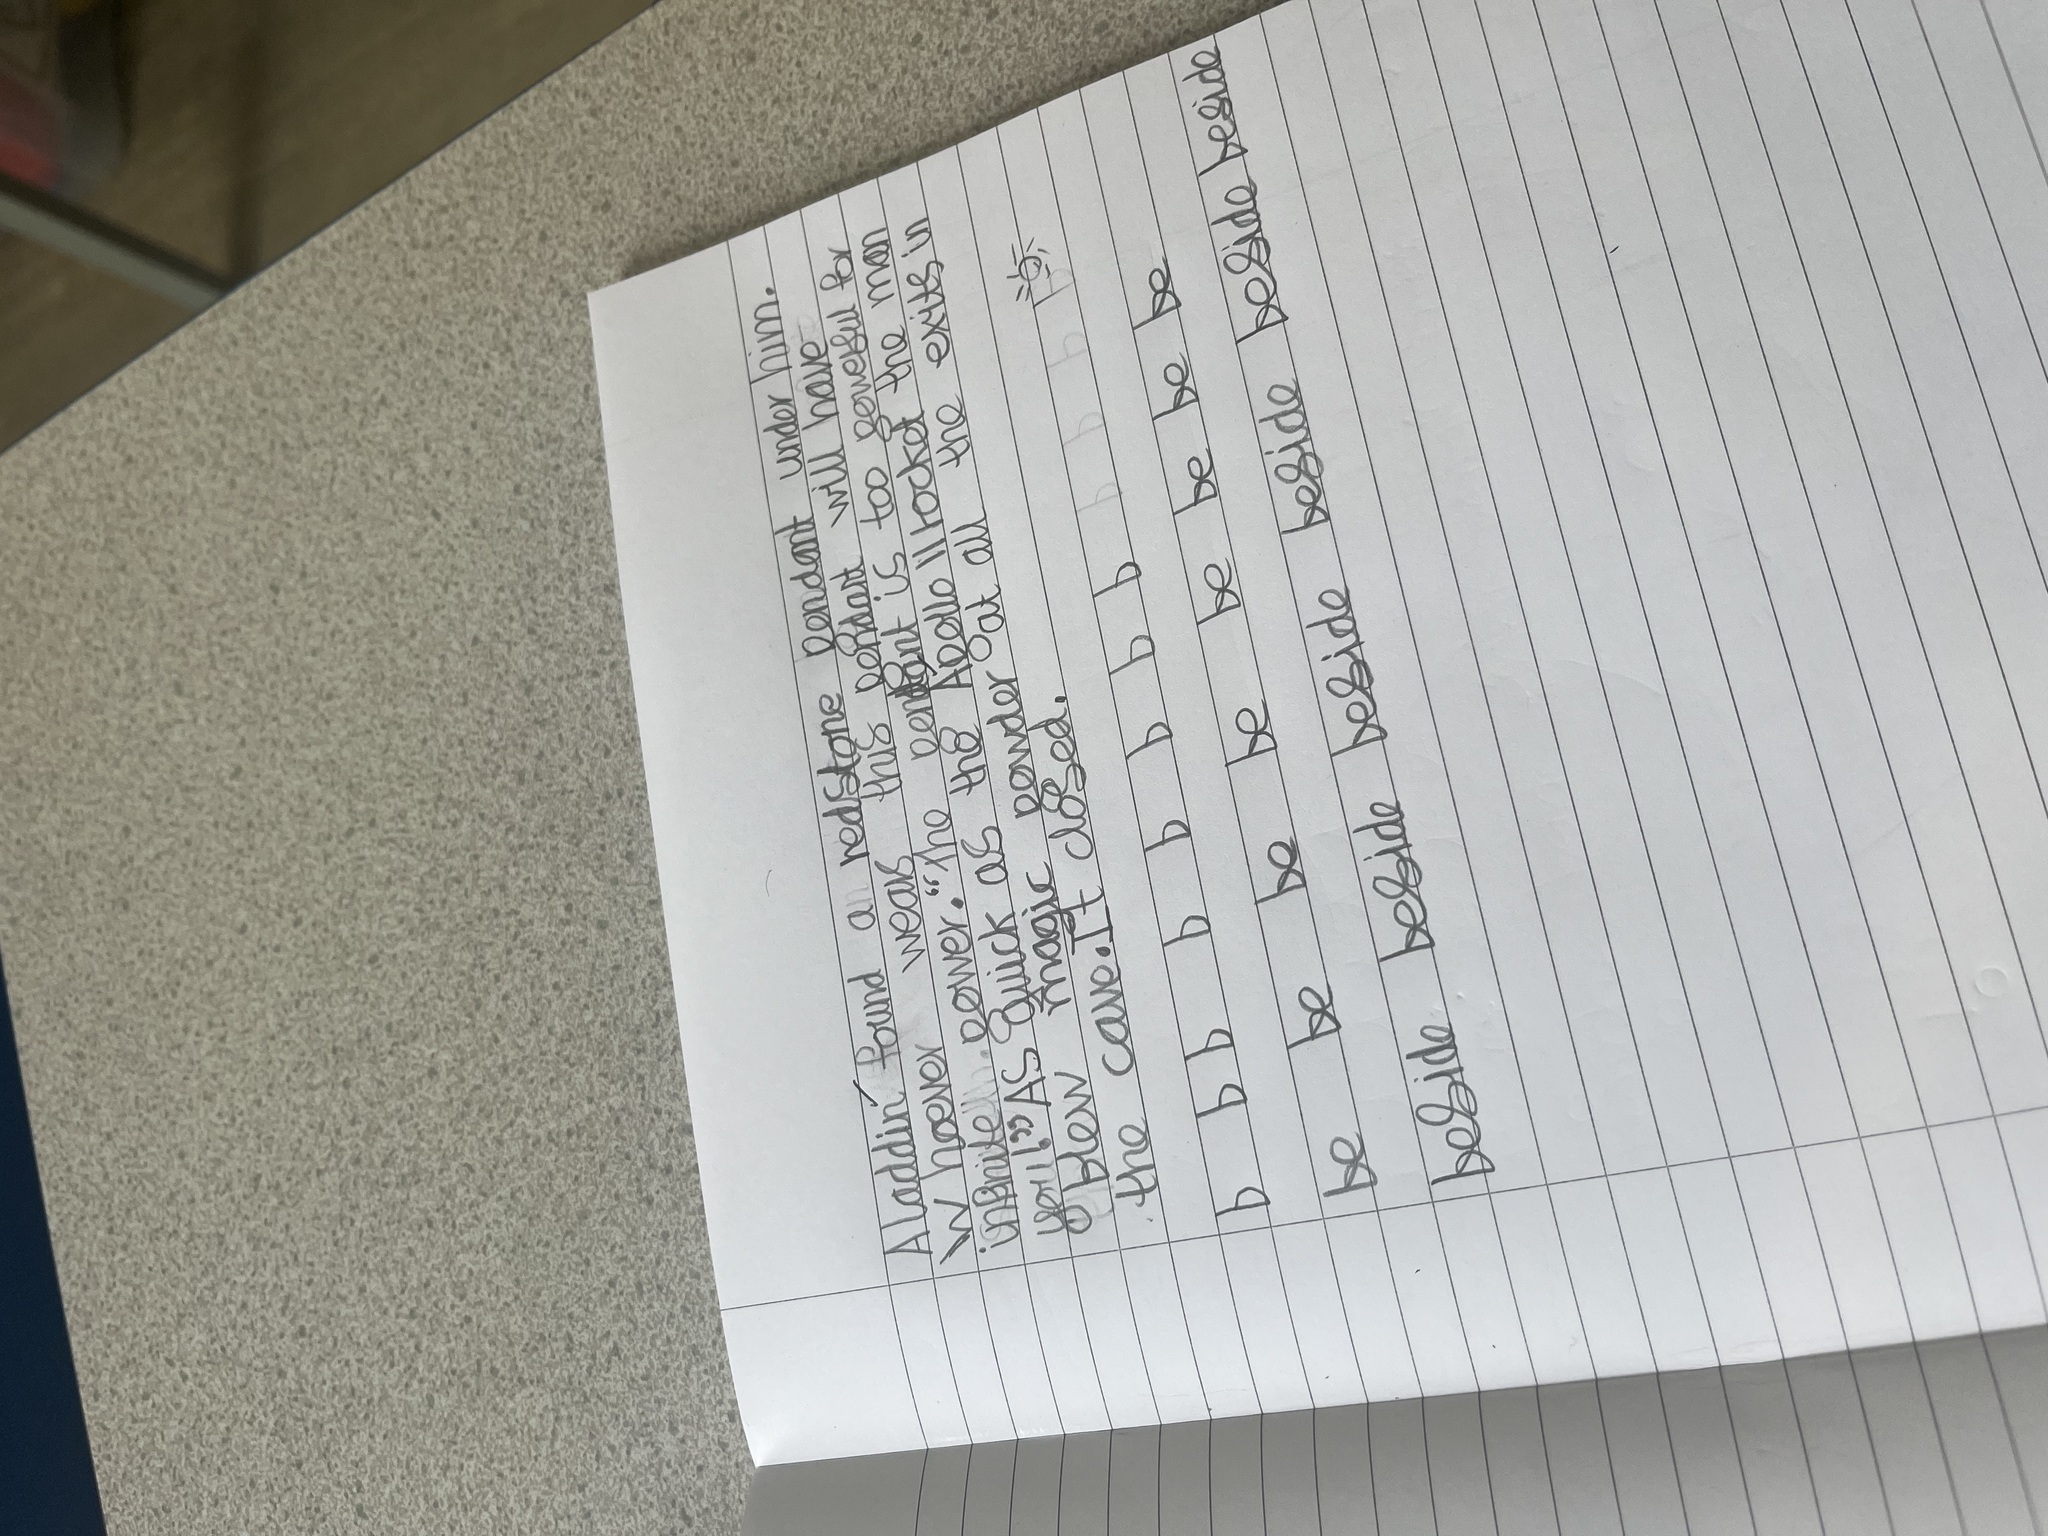 Aladdin found a redstone pendant under him.
W hoever wears this pendant will have
infinite power. "The pendant is too powerful for
you!" As quick as the Apollo 11 rocket the man
blew magic powder at all the exits in
the cave. It closed.
b b b b b b b b b b b b b
be be be be be be be be
beside beside beside beside beside beside beside